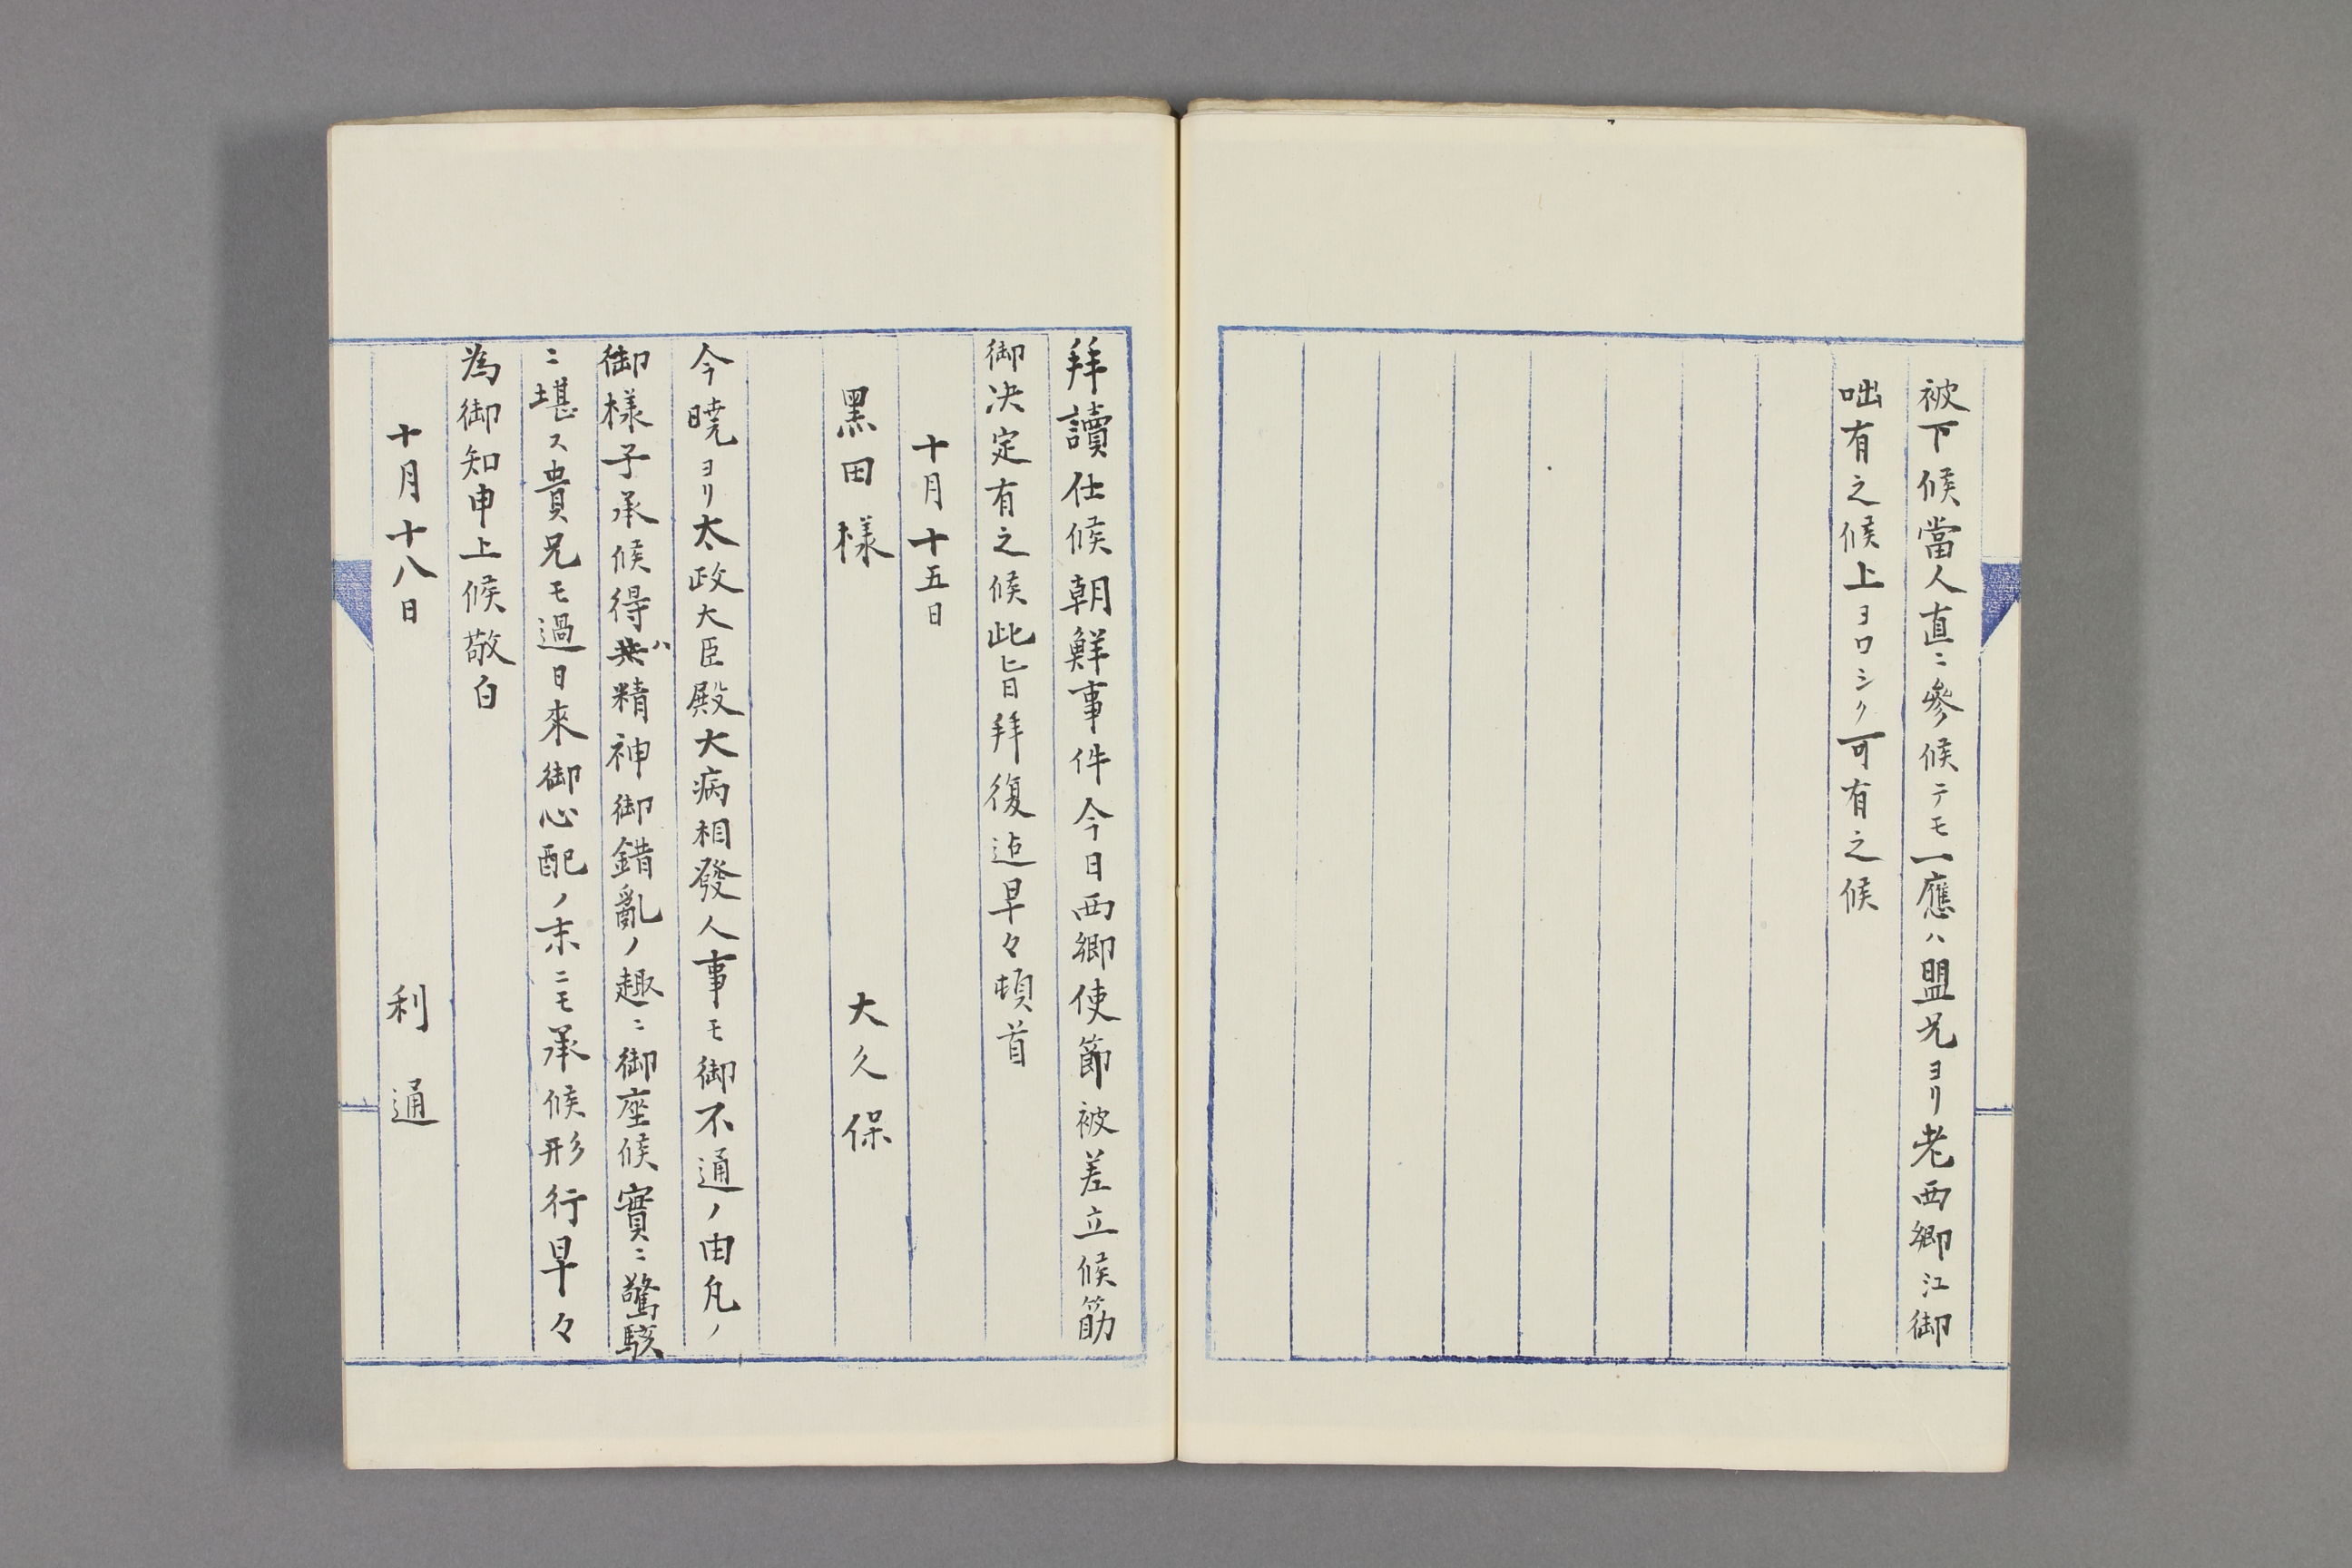 被下候當人直ニ參候テモ一應ハ盟兄ヨリ老西郷江御
咄有之候上ヨロシク可有之候
拜讀仕候朝鮮事件今日西郷使節被差立候筋
御决定有之候此旨拜復迠早々頓首
十月十五日
大久保
黑田樣
今曉ヨリ太政大臣殿大病相發人事モ御不通ノ由凡ノ
御樣子承候得共ハ精神御錯亂ノ趣ニ御座候實ニ驚駭
ニ堪ス貴兄モ過日來御心配ノ末ニモ承候形行早々
為御知申上候敬白
十月十八日
利通